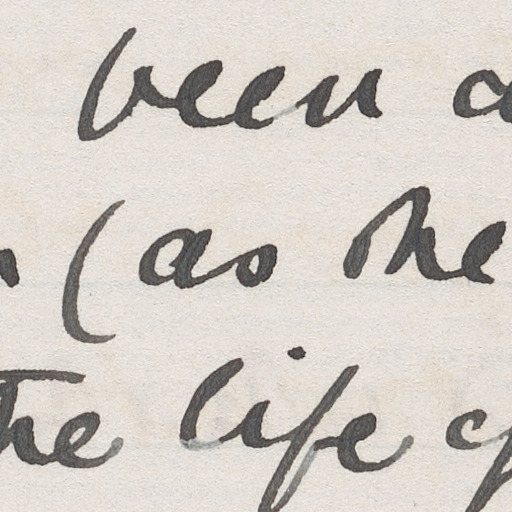 been
(as she
the life of